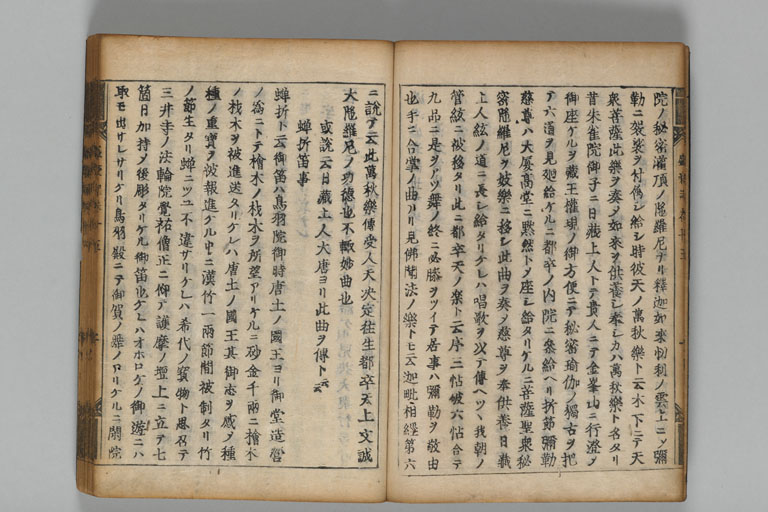 院ノ秘密灌頂ノ陀羅尼ナリ釈迦如来忉利ノ雲上ニノ彌
勒ニ袈裟ヲ付属シ給シ時彼天ノ萬秋樂ト云木下ニテ天
衆菩薩此樂ヲ奏〆如来ヲ供養シ奉シカハ萬秋樂ト名タリ
昔朱雀院御子ニ日蔵上人トテ貴人ニテ金峯山ニ行澄〆
御座ケルヲ蔵王權現ノ御方便ニテ秘密瑜伽ノ獨古ヲ把
テ六道ヲ見廻給ケルニ都卒ノ内院ニ参給ヘリ折節彌勒
慈尊ハ大厦高堂ニ黙然トノ座シ給タリケルニ菩薩聖衆秘
密陀羅尼ヲ妓樂ニ移シ此曲ヲ奏〆慈尊ヲ奉供養日蔵
上人絃ノ道ニ長シ給タリケレハ唱歌ヲ以テ傳ヘツヽ我朝ノ
管絃ニ被移タリ此ニ都卒天ノ樂ト云序三帖破六帖合テ
九品ニ是ヲアツ舞ノ終ニ必膝ヲツイテ居事ハ彌勒ヲ敬由
也手ニ合掌ノ曲アリ見佛聞法ノ樂トモ云迦毗相經第六
ニ説テ云此萬秋樂傳受人天決定往生都卒天上文誠
大陀羅尼ノ功徳也不輙姉曲也
或説云日蔵上人大唐ヨリ此曲ヲ傳ト云云
蝉折笛事
蝉折ト云御笛ハ鳥羽院御時唐土ノ國王ヨリ御堂造営
ノ為ニトテ檜木ノ材木ヲ所望アリケルニ砂金千兩ニ檜木
ノ材木ヲ被進送タリケレハ唐土ノ國王其御志ヲ感〆種
種ノ重寶ヲ被報進ケル中ニ漢竹一兩節間被制タリ竹
ノ節生タリ蝉ニツユ不違サリケレハ希代ノ寶物ト思召テ
三井寺ノ法輪院覺祐僧正ニ仰テ護摩ノ壇上ニ立テ七
箇日加持〆後彫タリケル御笛也ケレハオホロケノ御遊ニハ
取モ出サレサリケリ鳥羽殿ニテ御賀ノ舞ノアリケルニ閑院